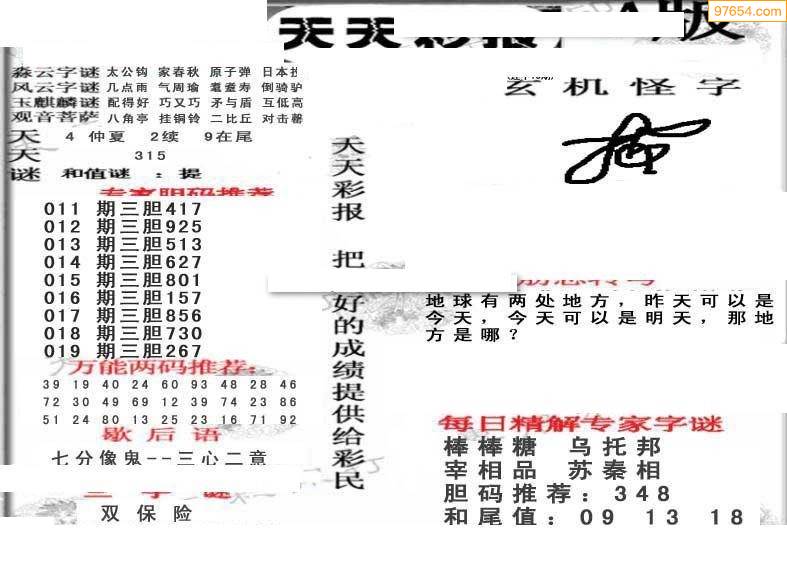 97654.com
天天彩报 A版
淼云字谜 太公钩 家春秋 原子弹 日本
风云字谜 几点雨 气周瑜 耄耋寿 倒骑驴
玉麒麟谜 配得好 巧又巧 矛与盾 互低高
观音菩萨 八角亭 挂铜铃 二比丘 对击罄
天 4 仲夏 2续 9在尾
天 315
谜 和值谜 : 提
专家胆码推荐
011 期三胆417
012 期三胆925
013 期三胆513
014 期三胆627
015 期三胆801
016 期三胆157
017 期三胆856
018 期三胆730
019 期三胆267
万能两码推荐:
39 19 40 24 60 93 48 28 46
72 30 49 69 12 39 74 23 86
51 24 80 13 25 23 16 71 92
歇后语
七分像鬼--三心二意
三字谜
双保险
天天彩报 把好的成绩提供给彩民
玄机怪字
地球有两处地方，昨天可以是
今天，今天可以是明天，那地
方是哪？
每日精解专家字谜
棒棒糖 乌托邦
宰相品 苏秦相
胆码推荐: 348
和尾值: 09 13 18